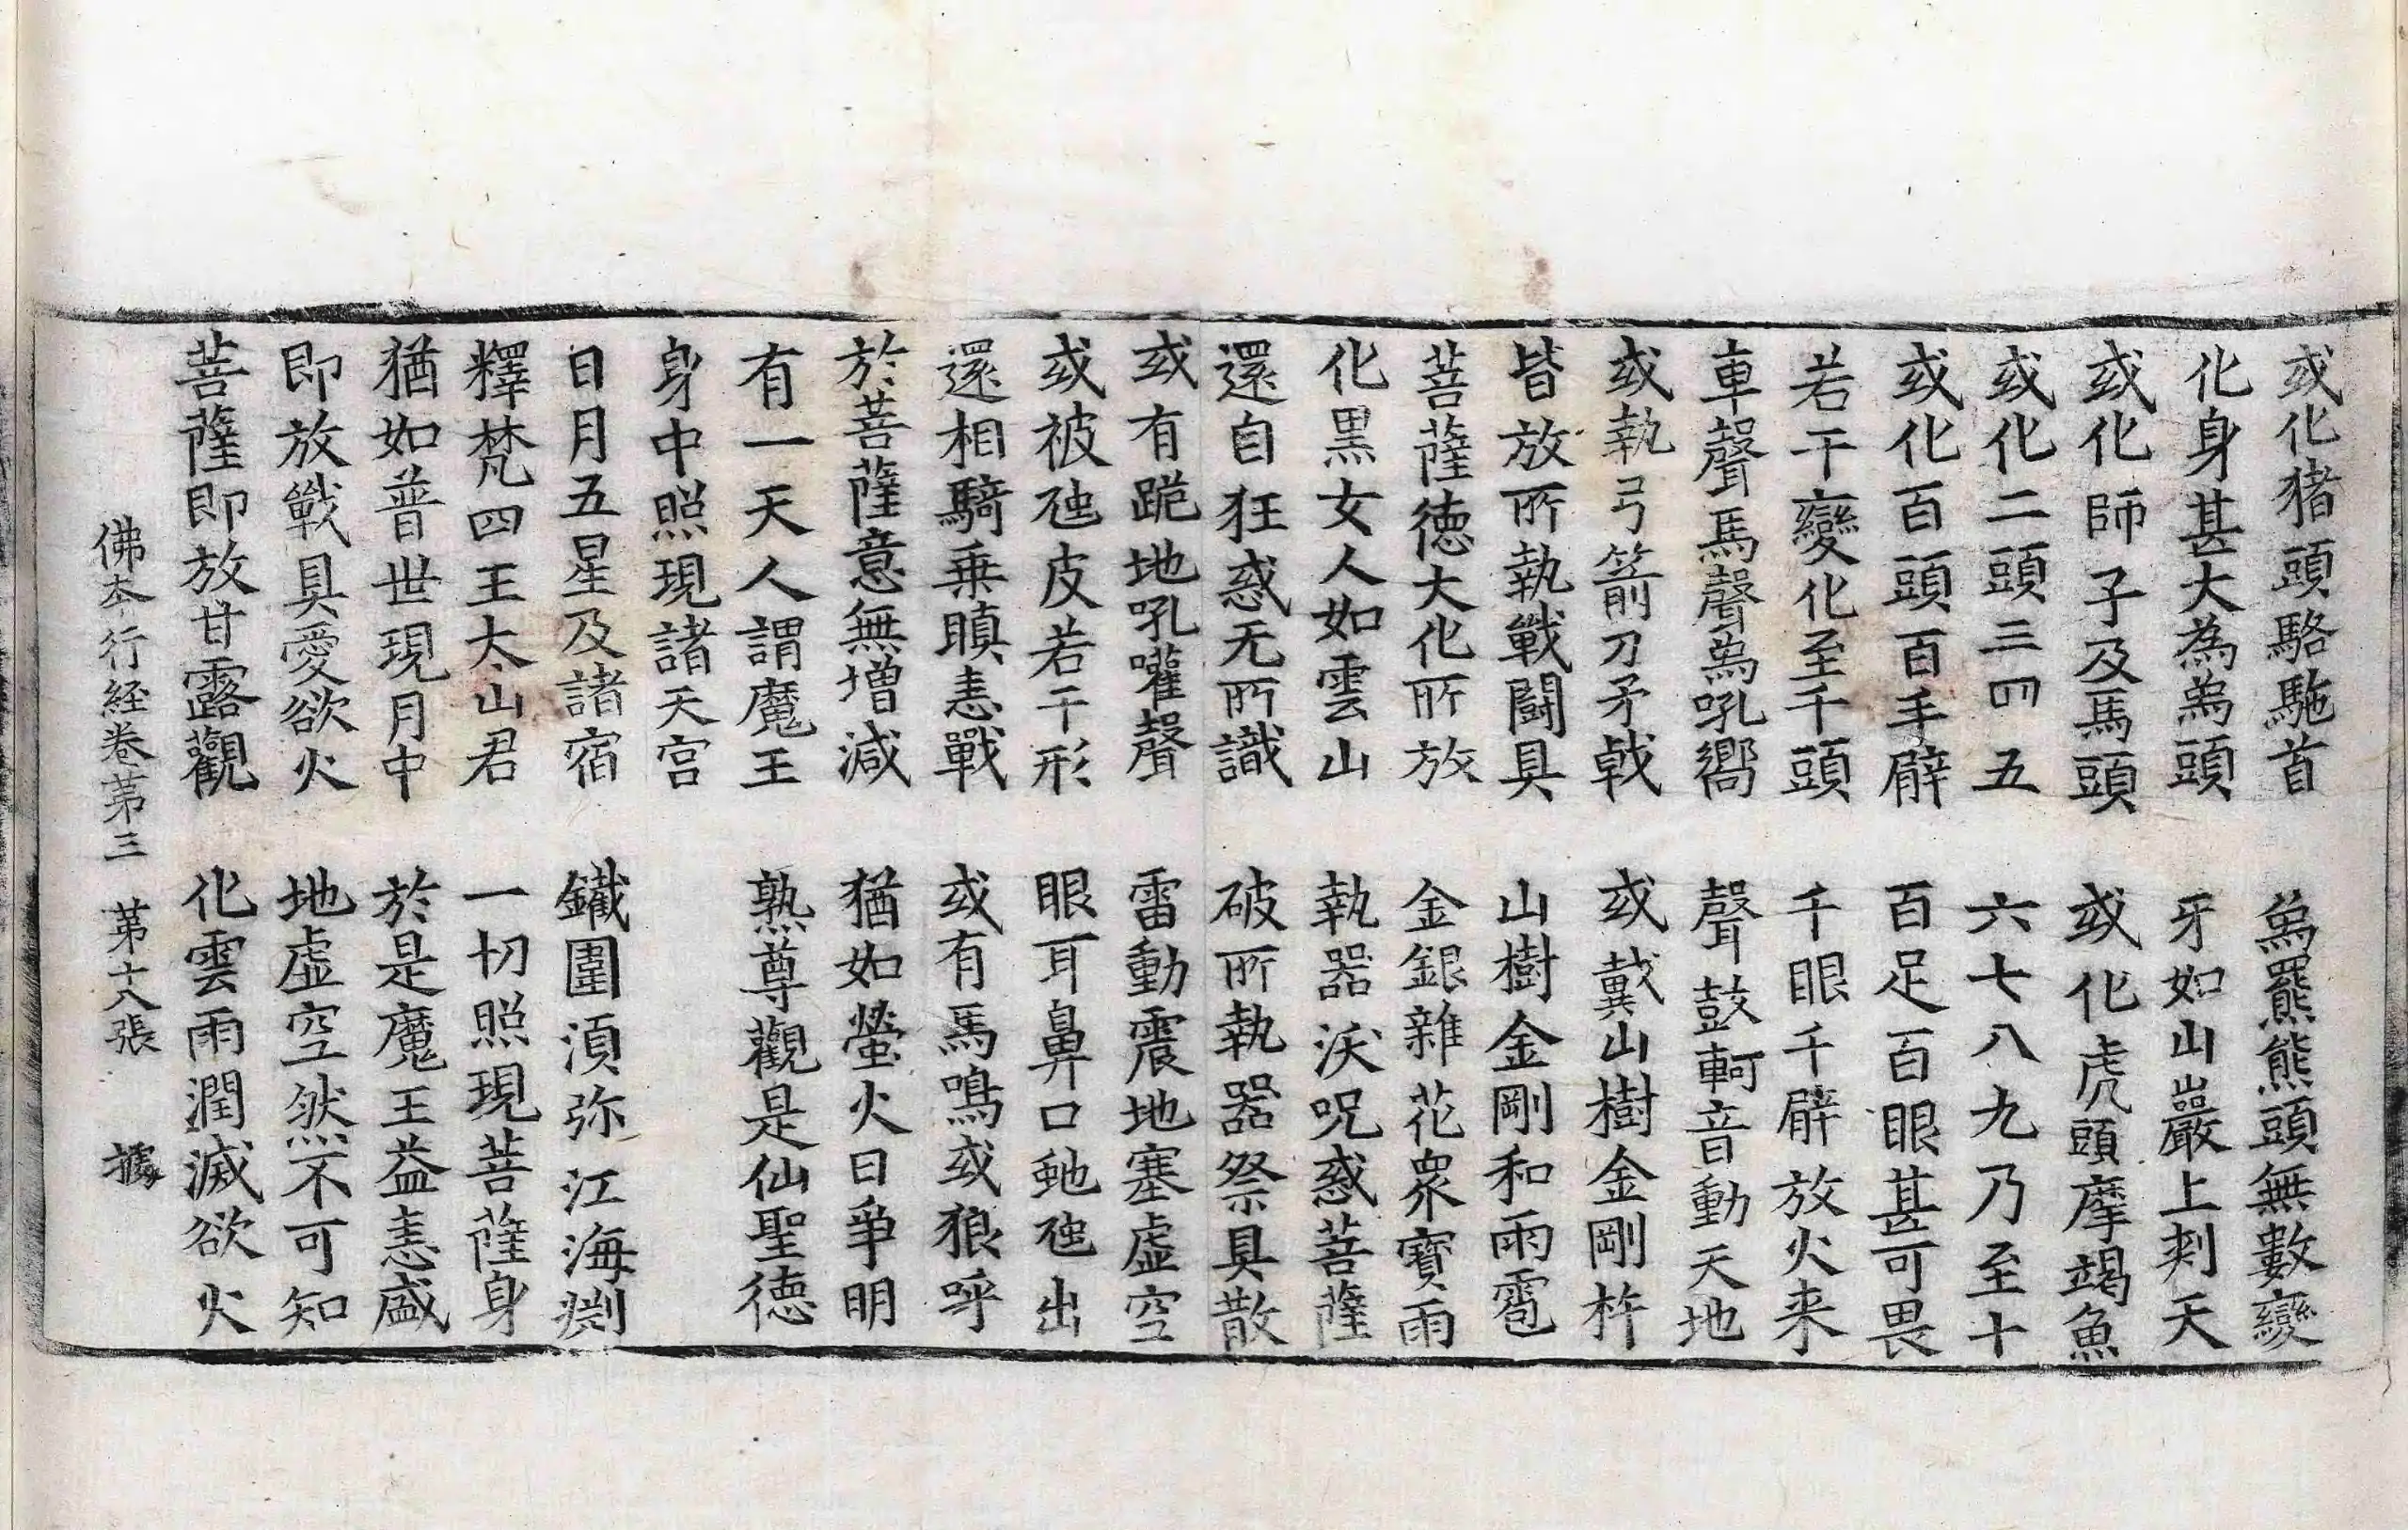 或化猪頭駱駞首　為羆熊頭無數變
化身甚大為爲頭　牙如山巖上刺天
或化師子及馬頭　或化虎頭摩竭魚
或化二頭三四五　六七八九乃至十
或化百頭百手臂　百足百眼甚可畏
若干變化至千頭　千眼千臂放火来
車聲馬聲為吼嚮　聲鼓軻音動天地
或執弓箭刀矛戟　或戴山樹金剛杵
皆放所執戰鬪具　山樹金剛和雨雹
菩薩德大化所放　金銀雜花衆寶雨
化黒女人如雲山　執器沃呪惑菩薩
還自狂惑无所識　破所執器祭具散
或有跪地吼嚾聲　雷動震地塞虛空
或被虵皮若干形　眼耳鼻口虵虵出
還相騎乗瞋恚戰　或有馬鳴或狼呼
於菩薩意無增減　猶如螢火日爭明
有一天人謂魔王　熟尊觀是仙聖德
身中照現諸天宮
日月五星及諸宿　鐵圍湏弥江海渕
釋梵四王太山君　一切照現菩薩身
猶如普世現月中　於是魔王益恚盛
即放戰具愛欲火　地虛空然不可知
菩薩即放甘露觀　化雲雨潤滅欲火
佛本行経卷苐三　苐十八張　據